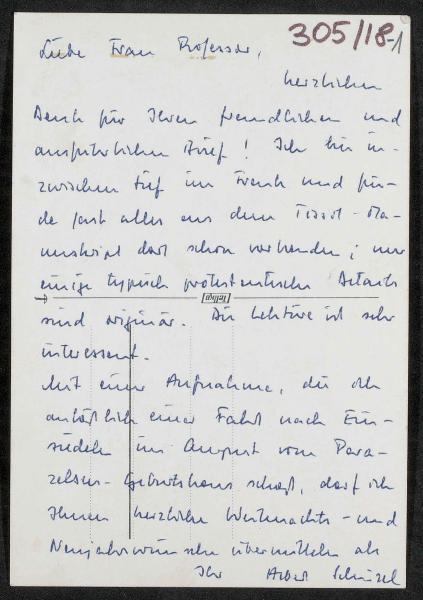 305/18-1
Liebe Frau Professor,
herzlichen
Dank für Ihren freundlichen und
ausführlichen Brief! Ich bin in-
zwischen tief im Frank und fin-
de fast alles aus dem Tissot-Ma-
nuskript dort schon vorhanden; nur
einige typisch protestantische Details
sind originär. Die Lektüre ist sehr
interessant.
Mit einer Aufnahme, die ich
anläßlich einer Fahrt nach Ein-
siedeln im August vom Para-
zelsus-Geburtshaus schoß, darf ich
Ihnen herzliche Weihnachts- und
Neujahrswünsche übermitteln als
Ihr